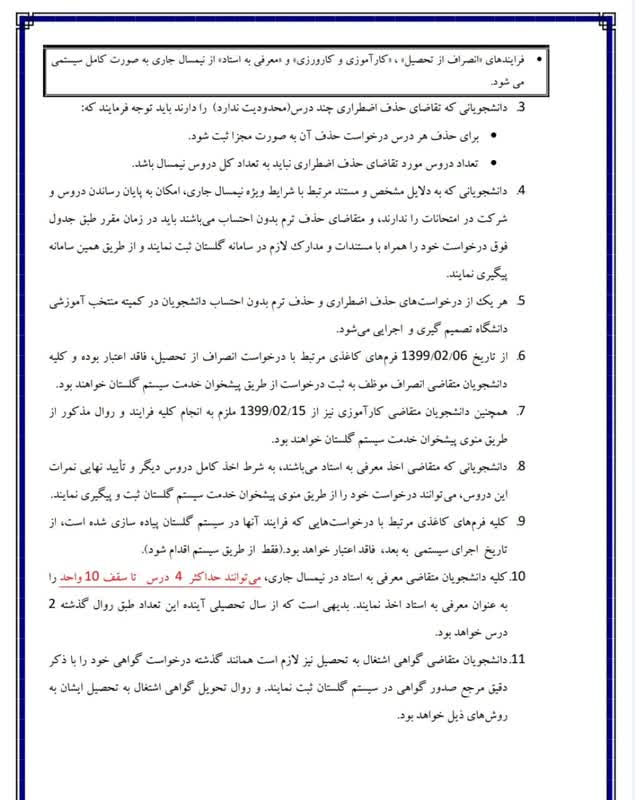 • فرایندهای «انصراف از تحصیل» ، «کارآموزی و کارورزی» و «معرفی به استاد» از نیمسال جاری به صورت کامل سیستمی
می شود.
3. دانشجویانی که تقاضای حذف اضطراری چند درس(محدودیت ندارد) را دارند باید توجه فرمایند که:
• برای حذف هر درس درخواست حذف آن به صورت مجزا ثبت شود.
• تعداد دروس مورد تقاضای حذف اضطراری نباید به تعداد کل دروس نیمسال باشد.
4. دانشجویانی که به دلایل مشخص و مستند مرتبط با شرایط ویژه نیمسال جاری، امکان به پایان رساندن دروس و
شرکت در امتحانات را ندارند، و متقاضای حذف ترم بدون احتساب می‌باشند باید در زمان مقرر طبق جدول
فوق درخواست خود را همراه با مستندات و مدارک لازم در سامانه گلستان ثبت نمایند و از طریق همین سامانه
پیگیری نمایند.
5. هر یک از درخواست‌های حذف اضطراری و حذف ترم بدون احتساب دانشجویان در کمیته منتخب آموزشی
دانشگاه تصمیم گیری و اجرایی می‌شود.
6. از تاریخ 1399/02/06 فرم‌های کاغذی مرتبط با درخواست انصراف از تحصیل، فاقد اعتبار بوده و کلیه
دانشجویان متقاضی انصراف موظف به ثبت درخواست از طریق پیشخوان خدمت سیستم گلستان خواهند بود.
7. همچنین دانشجویان متقاضی کارآموزی نیز از 1399/02/15 ملزم به انجام کلیه فرایند و روال مذکور از
طریق منوی پیشخوان خدمت سیستم گلستان خواهند بود.
8. دانشجویانی که متقاضی اخذ معرفی به استاد می‌باشند، به شرط اخذ کامل دروس دیگر و تأیید نهایی نمرات
این دروس، می‌توانند درخواست خود را از طریق منوی پیشخوان خدمت سیستم گلستان ثبت و پیگیری نمایند.
9. کلیه فرم‌های کاغذی مرتبط با درخواست‌هایی که فرایند آنها در سیستم گلستان پیاده سازی شده است، از
تاریخ اجرای سیستمی به بعد، فاقد اعتبار خواهد بود.(فقط از طریق سیستم اقدام شود).
10. کلیه دانشجویان متقاضی معرفی به استاد در نیمسال جاری، می‌توانند حداکثر 4 درس تا سقف 10 واحد را
به عنوان معرفی به استاد اخذ نمایند. بدیهی است که از سال تحصیلی آینده این تعداد طبق روال گذشته 2
درس خواهد بود.
11. دانشجویان متقاضی گواهی اشتغال به تحصیل نیز لازم است همانند گذشته درخواست گواهی خود را با ذکر
دقیق مرجع صدور گواهی در سیستم گلستان ثبت نمایند. و روال تحویل گواهی اشتغال به تحصیل ایشان به
روش‌های ذیل خواهد بود.